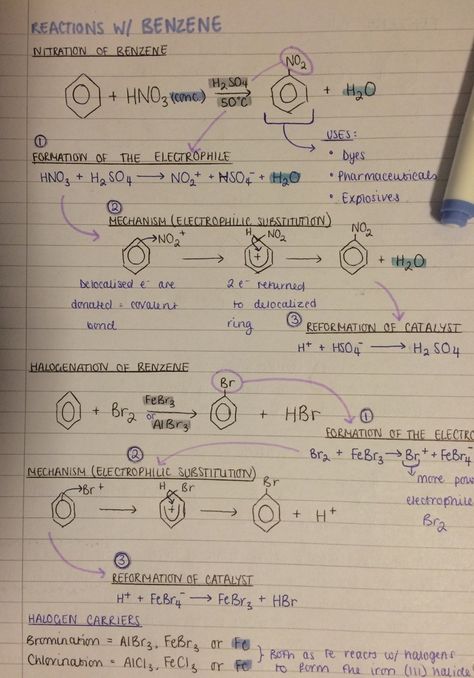 REACTIONS W/ BENZENE
NITRATION OF BENZENE
NO₂
+ HNO₃ (conc.) H₂SO₄ 50°C + H₂O
USES:
• Dyes
• Pharmaceuticals
• Explosives
①
FORMATION OF THE ELECTROPHILE
HNO₃ + H₂SO₄ → NO₂⁺ + HSO₄⁻ + H₂O
②
MECHANISM (ELECTROPHILIC SUBSTITUTION)
NO₂⁺ H NO₂ + NO₂ + H₂O
Delocalised e⁻ are 2 e⁻ returned
donated = covalent to delocalized
bond ring
③ REFORMATION OF CATALYST
H⁺ + HSO₄⁻ → H₂SO₄
HALOGENATION OF BENZENE
Br
+ Br₂ FeBr₃ or AlBr₃ + HBr
①
FORMATION OF THE ELECTRO
Br₂ + FeBr₃ → Br⁺ + FeBr₄⁻
more pow
electrophile
Br₂
②
MECHANISM (ELECTROPHILIC SUBSTITUTION)
Br⁺ H Br + Br + H⁺
③
REFORMATION OF CATALYST
H⁺ + FeBr₄⁻ → FeBr₃ + HBr
HALOGEN CARRIERS
Bromination = AlBr₃, FeBr₃ or Fe
Chlorination = AlCl₃, FeCl₃ or Fe
} Both as Fe reacts w/ halogens
to form the iron (III) halide